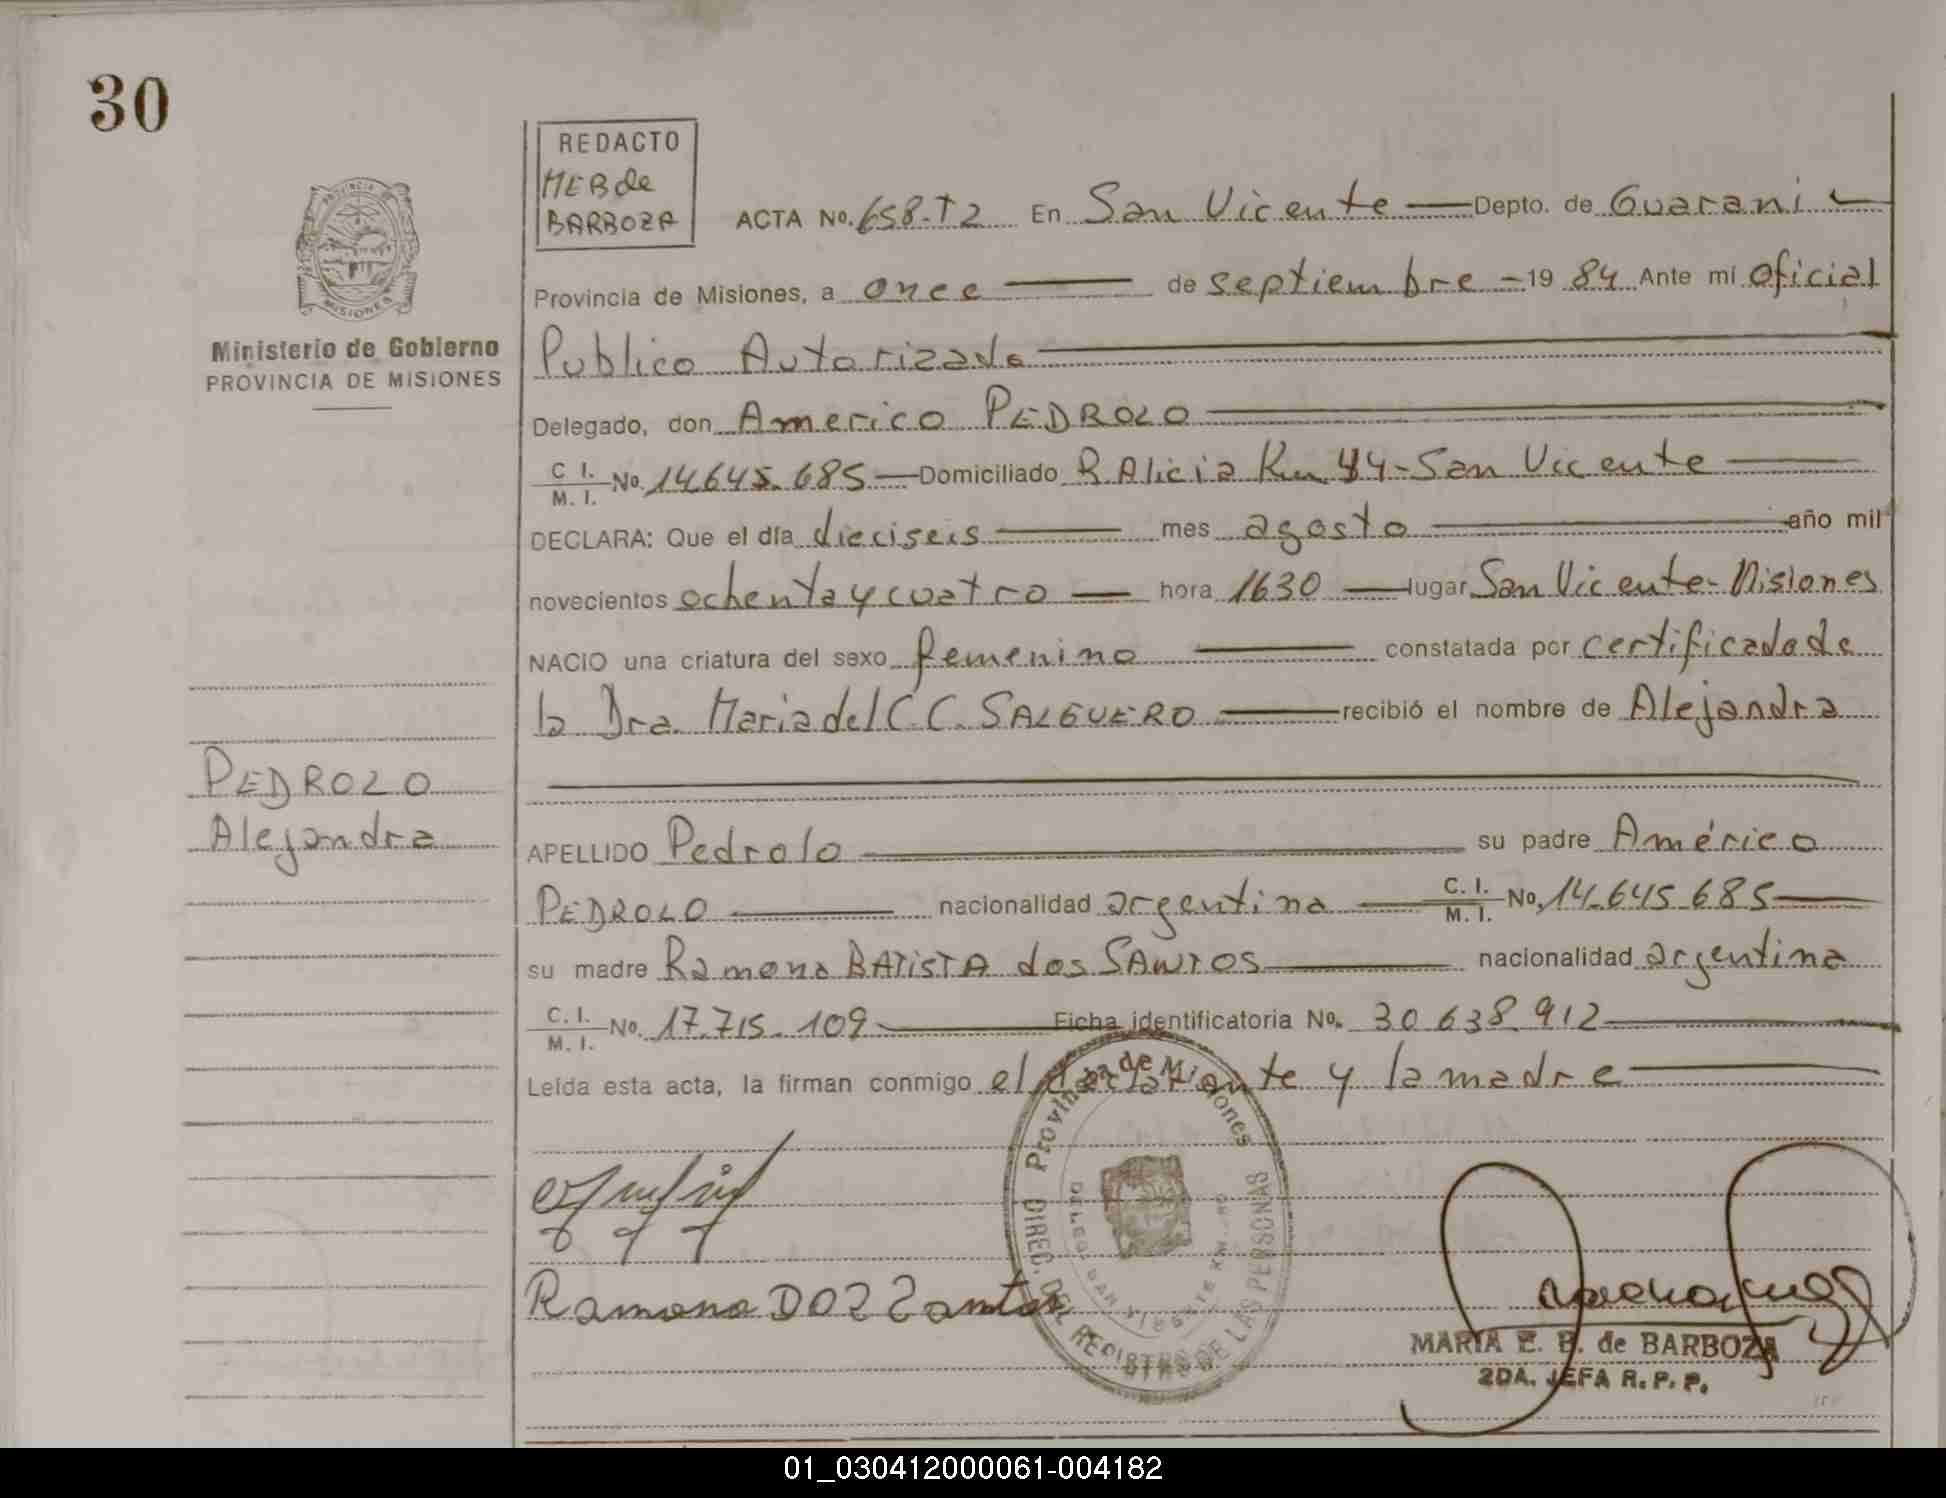 30
REDACTO
MEB de
BARBOZA
ACTA No. 658-T2 En San Vicente Depto. de Guarani
PROVINCIA MISIONES
Ministerio de Gobierno
PROVINCIA DE MISIONES
Provincia de Misiones, a once de septiembre - 19 84 Ante mí oficial
Publico Autorizado
Delegado, don Americo PEDROLO
C. I. M. I. No. 14.645.685 Domiciliado R. Alicia Km 44 - San Vicente
DECLARA: Que el día dieciseis mes agosto año mil
novecientos ochenta y cuatro hora 1630 lugar San Vicente - Misiones
NACIO una criatura del sexo femenino constatada por certificado de
la Dra. Maria del C. C. SALGUERO recibió el nombre de Alejandra
PEDROLO
Alejandra
APELLIDO Pedrolo su padre Américo
PEDROLO nacionalidad argentina C. I. M. I. No. 14.645.685
su madre Ramona BATISTA dos SANTOS nacionalidad argentina
C. I. M. I. No. 17.715.109 Ficha identificatoria No. 30.638.912
Leída esta acta, la firman conmigo el declarante y la madre
Provincia de Misiones
DIREC. DEL REGISTRO DE LAS PERSONAS
DELEG. SAN VICENTE KM.
Ramona DOS Santos
MARIA E. B. de BARBOZA
2DA. JEFA R. P. P.
01_030412000061-004182